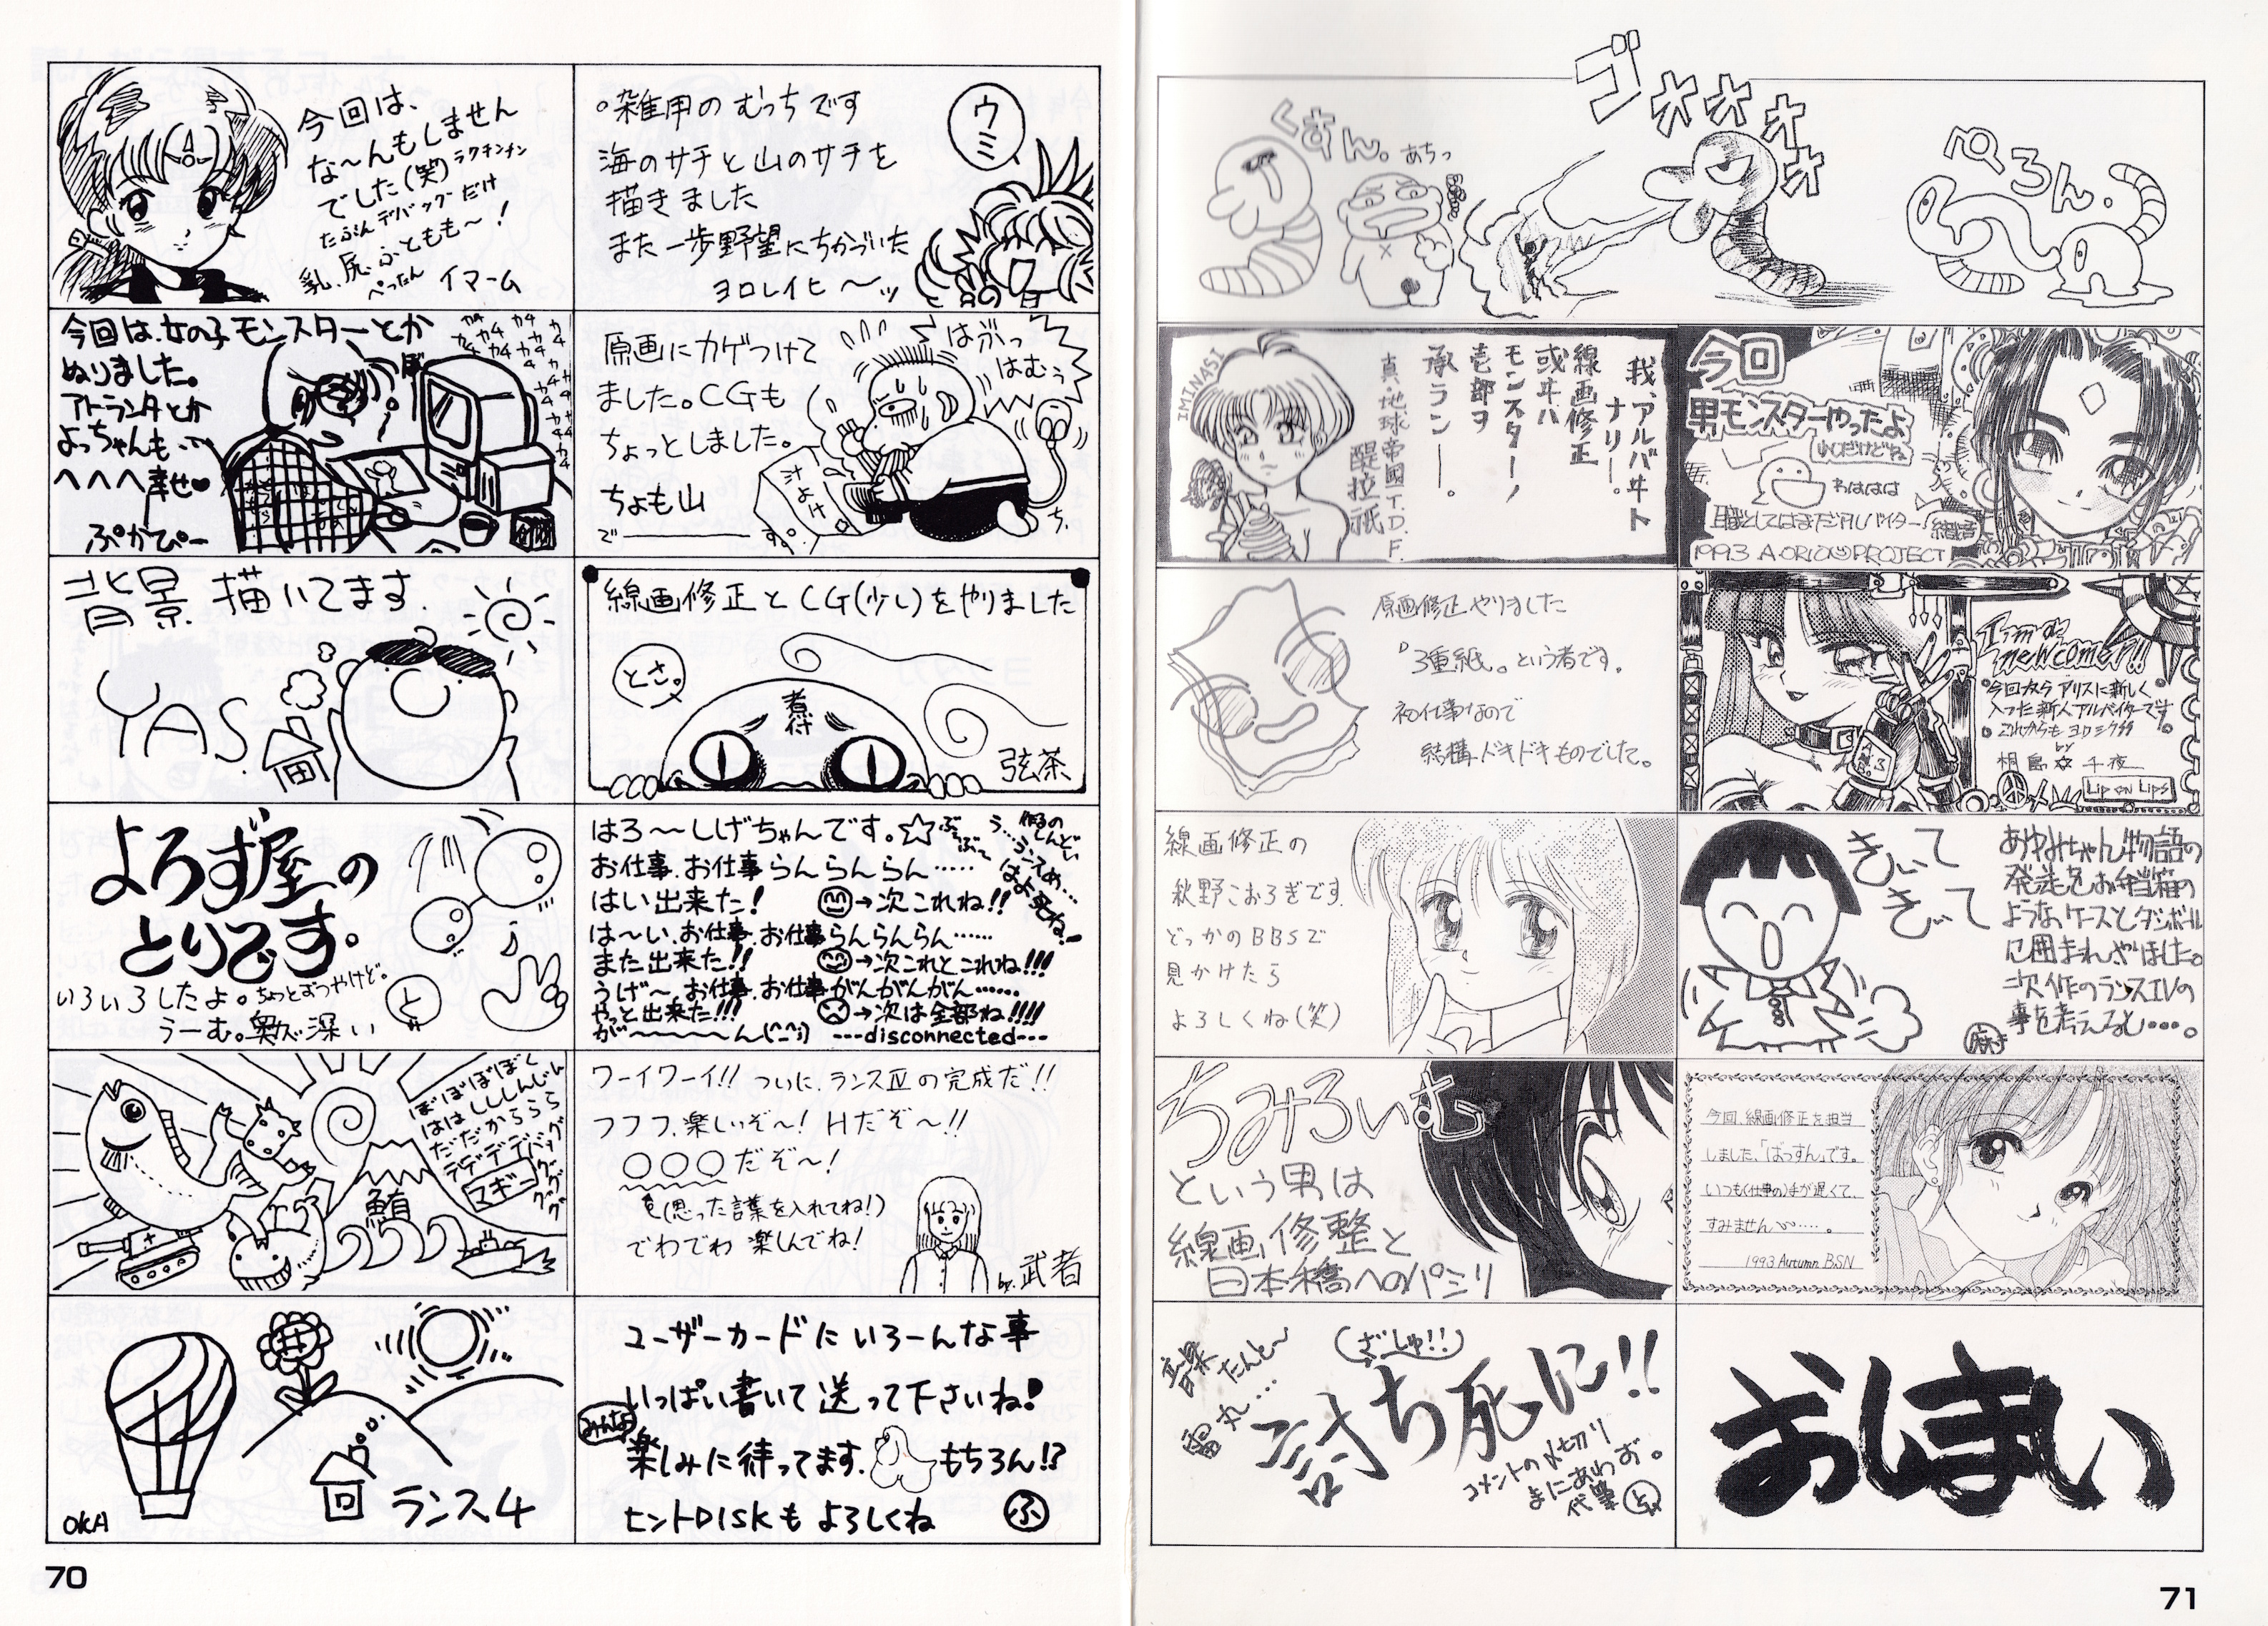 今回は、
な〜んもしません
でした(笑)ラクチンチン
たぶんデバッグだけ
乳、尻、ふともも〜!
ぺったん イマーム
○雑用のむっちです
海のサチと山のサチを
描きました
また一歩野望にちかづいた
ヨロレイヒ〜ッ
ウミ
今回は、女の子モンスターとか
ぬりました。
アトランタとか
よっちゃんも…
へへへ幸せ♥
ぷかぴー
カチ カチ カチ カチ
原画にカゲつけて
ました。CGも
ちょっとしました。
ちょも山
で――す。
はぶっ
はむぅ
汁よけ
背景描いてます.
YAS.
線画修正とCG(少し)をやりました
とさ。
煮付
弦茶
よろず屋の
とりです。
いろいろしたよ。ちょっとずつやけど。
うーむ。奥が深い
と
はろ〜〜しげちゃんです。☆
お仕事、お仕事らんらんらん……
はい出来た! →次これね!!
は〜い、お仕事、お仕事らんらんらん……
また出来た!! →次これとこれね!!!
うげ〜、お仕事、お仕事がんがんがん……
やっと出来た!!! →次は全部ね!!!!
が〜〜〜〜〜ん(^^;) ---disconnected---
ぼぼぼぼく
はは しししんじん
だだからららら
デデデデバッグ
ググググ
マギー
鮪
ワーイワーイ!! ついに、ランスⅣの完成だ!!
フフフ、楽しいぞ〜! Hだぞ〜!!
○○○だぞ〜!
(思った言葉を入れてね!)
でわでわ 楽しんでね!
by.武者
OKA
ランス4
ユーザーカードにいろーんな事
いっぱい書いて送って下さいね!
みんな
楽しみに待ってます. もちろん!?
ヒントDISKもよろしくね
ふ
70
くすん.
あちっ
ゴォォォォ
ぺろん.
我、アルバヰト
ナリー。
線画修正
或ヰハ
モンスター ノ
壱部ヲ
承ランー。
真・地球帝國T.D.F.
醍拉紙
IMINASI
今回
男モンスターやったよ
少しだけどね
わははは
1993 AORIO PROJECT
原画修正やりました
「3重紙」という者です。
初仕事なので
結構、ドキドキものでした。
I'm a newcomer!!
今回からアリスに新しく
入った新人アルバイターです
これからもヨロシク
by
桐島☆千夜
Lip on Lips
線画修正の
秋野こおろぎです.
どっかのBBSで
見かけたら
よろしくね(笑)
きいて
きいて
あゆみちゃん物語の
発送をお弁当箱の
ようなケースとダンボール
に囲まれてやりました。
次作のランスⅣの
事を考えると…。
ちみろいむ
という男は
線画修整と
日本橋へのパシリ
今回、線画修正を担当
しました、「ばっすん」です。
いつも(仕事の)手が遅くて
すみません〜……。
1993 Autumn BSN
音楽 たんと〜
雷丸…
ざしゅ!!
討ち死に!!
コメントの〆切り
まにあわず。
代筆 と
おしまい
71